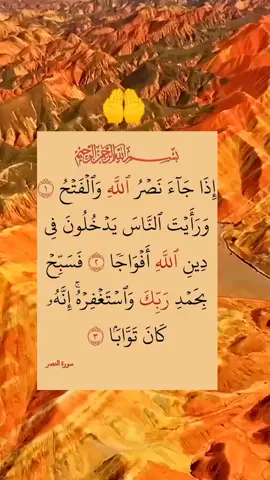 بِسْمِ اللَّهِ الرَّحْمَٰنِ الرَّحِيمِ
إِذَا جَآءَ نَصْرُ ٱللَّهِ وَٱلْفَتْحُ ١
وَرَأَيْتَ ٱلنَّاسَ يَدْخُلُونَ فِى
دِينِ ٱللَّهِ أَفْوَاجًا ٢ فَسَبِّحْ
بِحَمْدِ رَبِّكَ وَٱسْتَغْفِرْهُ ۚ إِنَّهُۥ
كَانَ تَوَّابًۢا ٣
سورة النصر